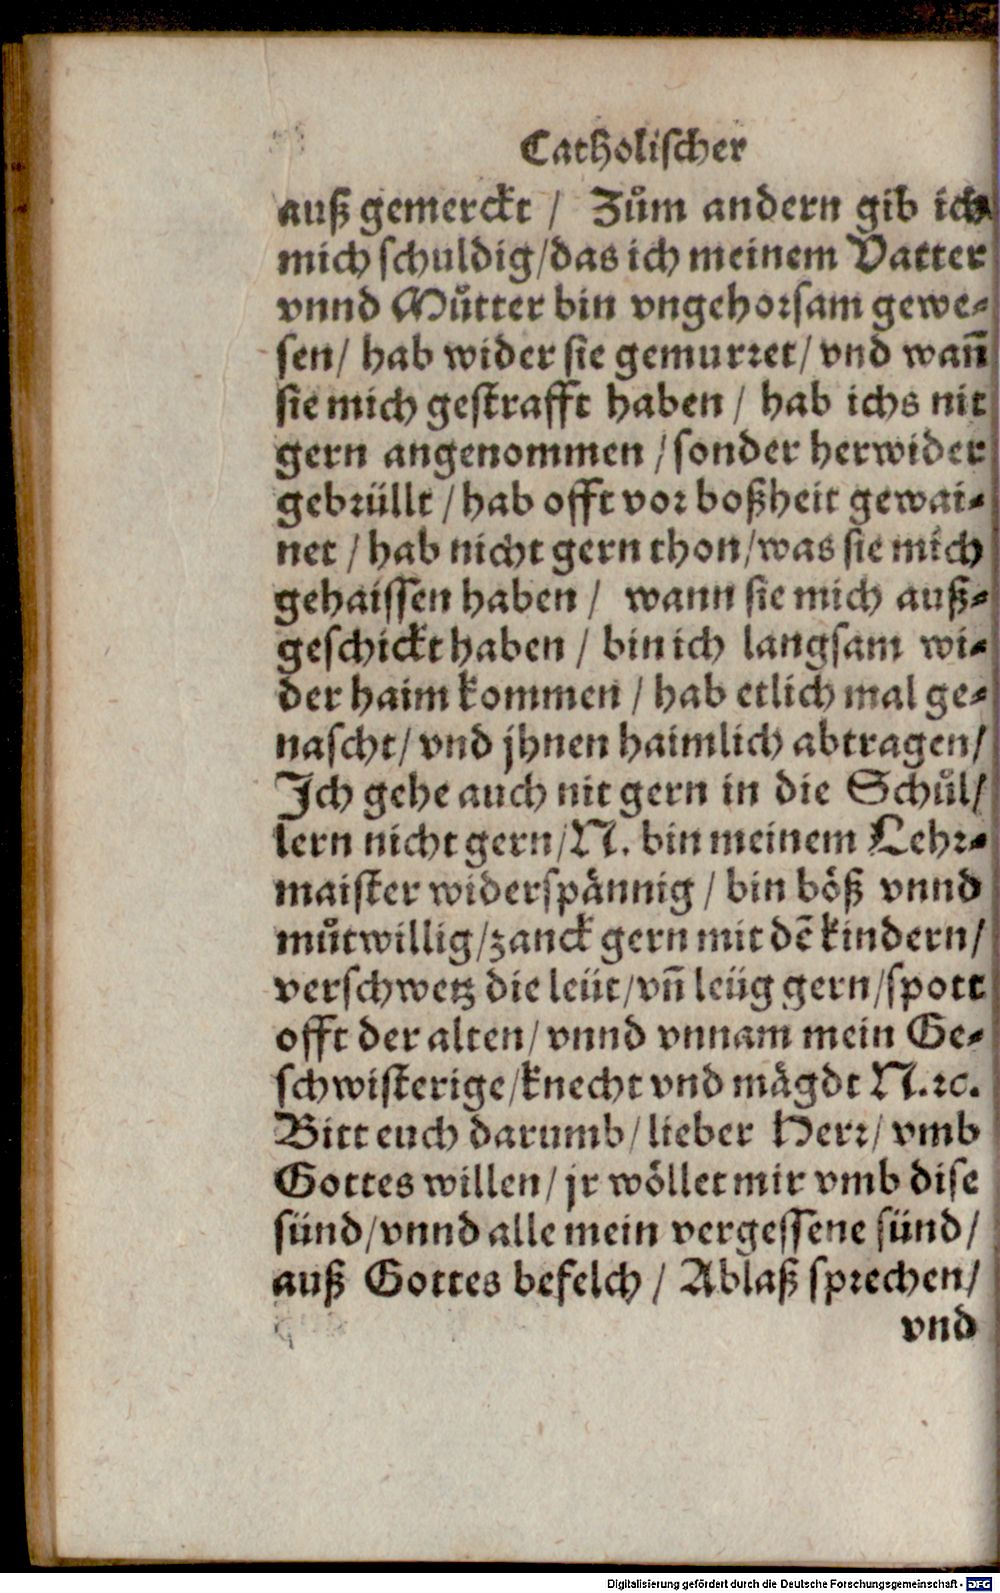 Catholischer
auß gemerckt / Zům andern gib ich
mich schuldig/das ich meinem Vatter
vnnd Můtter bin vngehorsam gewe-
sen/ hab wider sie gemurret/ vnd wañ
sie mich gestrafft haben / hab ichs nit
gern angenommen /sonder herwider
gebrüllt /hab offt vor boßheit gewai-
net / hab nicht gern thon/was sie mich
gehaissen haben / wann sie mich auß-
geschickt haben / bin ich langsam wi-
der haim kommen / hab etlich mal ge-
nascht/ vnd jhnen haimlich abtragen/
Ich gehe auch nit gern in die Schůl/
lern nicht gern/N. bin meinem Lehr-
maister widerspännig / bin böß vnnd
můtwillig/zanck gern mit dẽ kindern/
verschwetz die leüt/vñ leüg gern/spott
offt der alten/ vnnd vnnam mein Ge-
schwisterige/knecht vnd mägdt N.ꝛc.
Bitt euch darumb/lieber Herr/ vmb
Gottes willen/ jr wöllet mir vmb dise
sünd/vnnd alle mein vergessene sünd/
auß Gottes befelch / Ablaß sprechen/
vnd
Digitalisierung gefördert durch die Deutsche Forschungsgemeinschaft - DFG